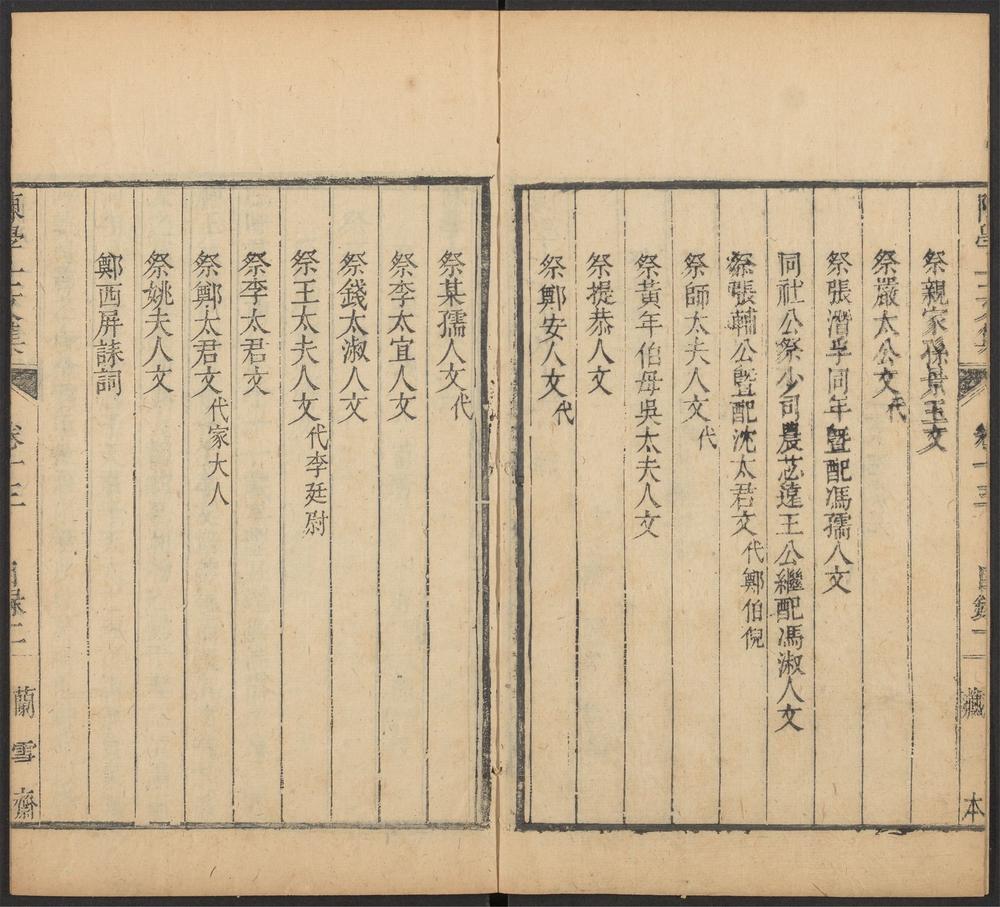 祭親家孫景玉文
祭嚴太公文代
祭張潛孚同年暨配馮孺人文
同社公祭少司農芯遠王公繼配馮淑人文
祭張輔公暨配沈太君文代鄭伯倪
祭師太夫人文代
祭黃年伯母吳太夫人文
祭提恭人文
祭鄭安人文代
卷十三
目錄一
藏本
祭某孺人文代
祭李太宜人文
祭錢太淑人文
祭王太夫人文代李廷尉
祭李太君文
祭鄭太君文代家大人
祭姚夫人文
鄭西屏誄詞
卷十三
目錄二
蘭雪齋